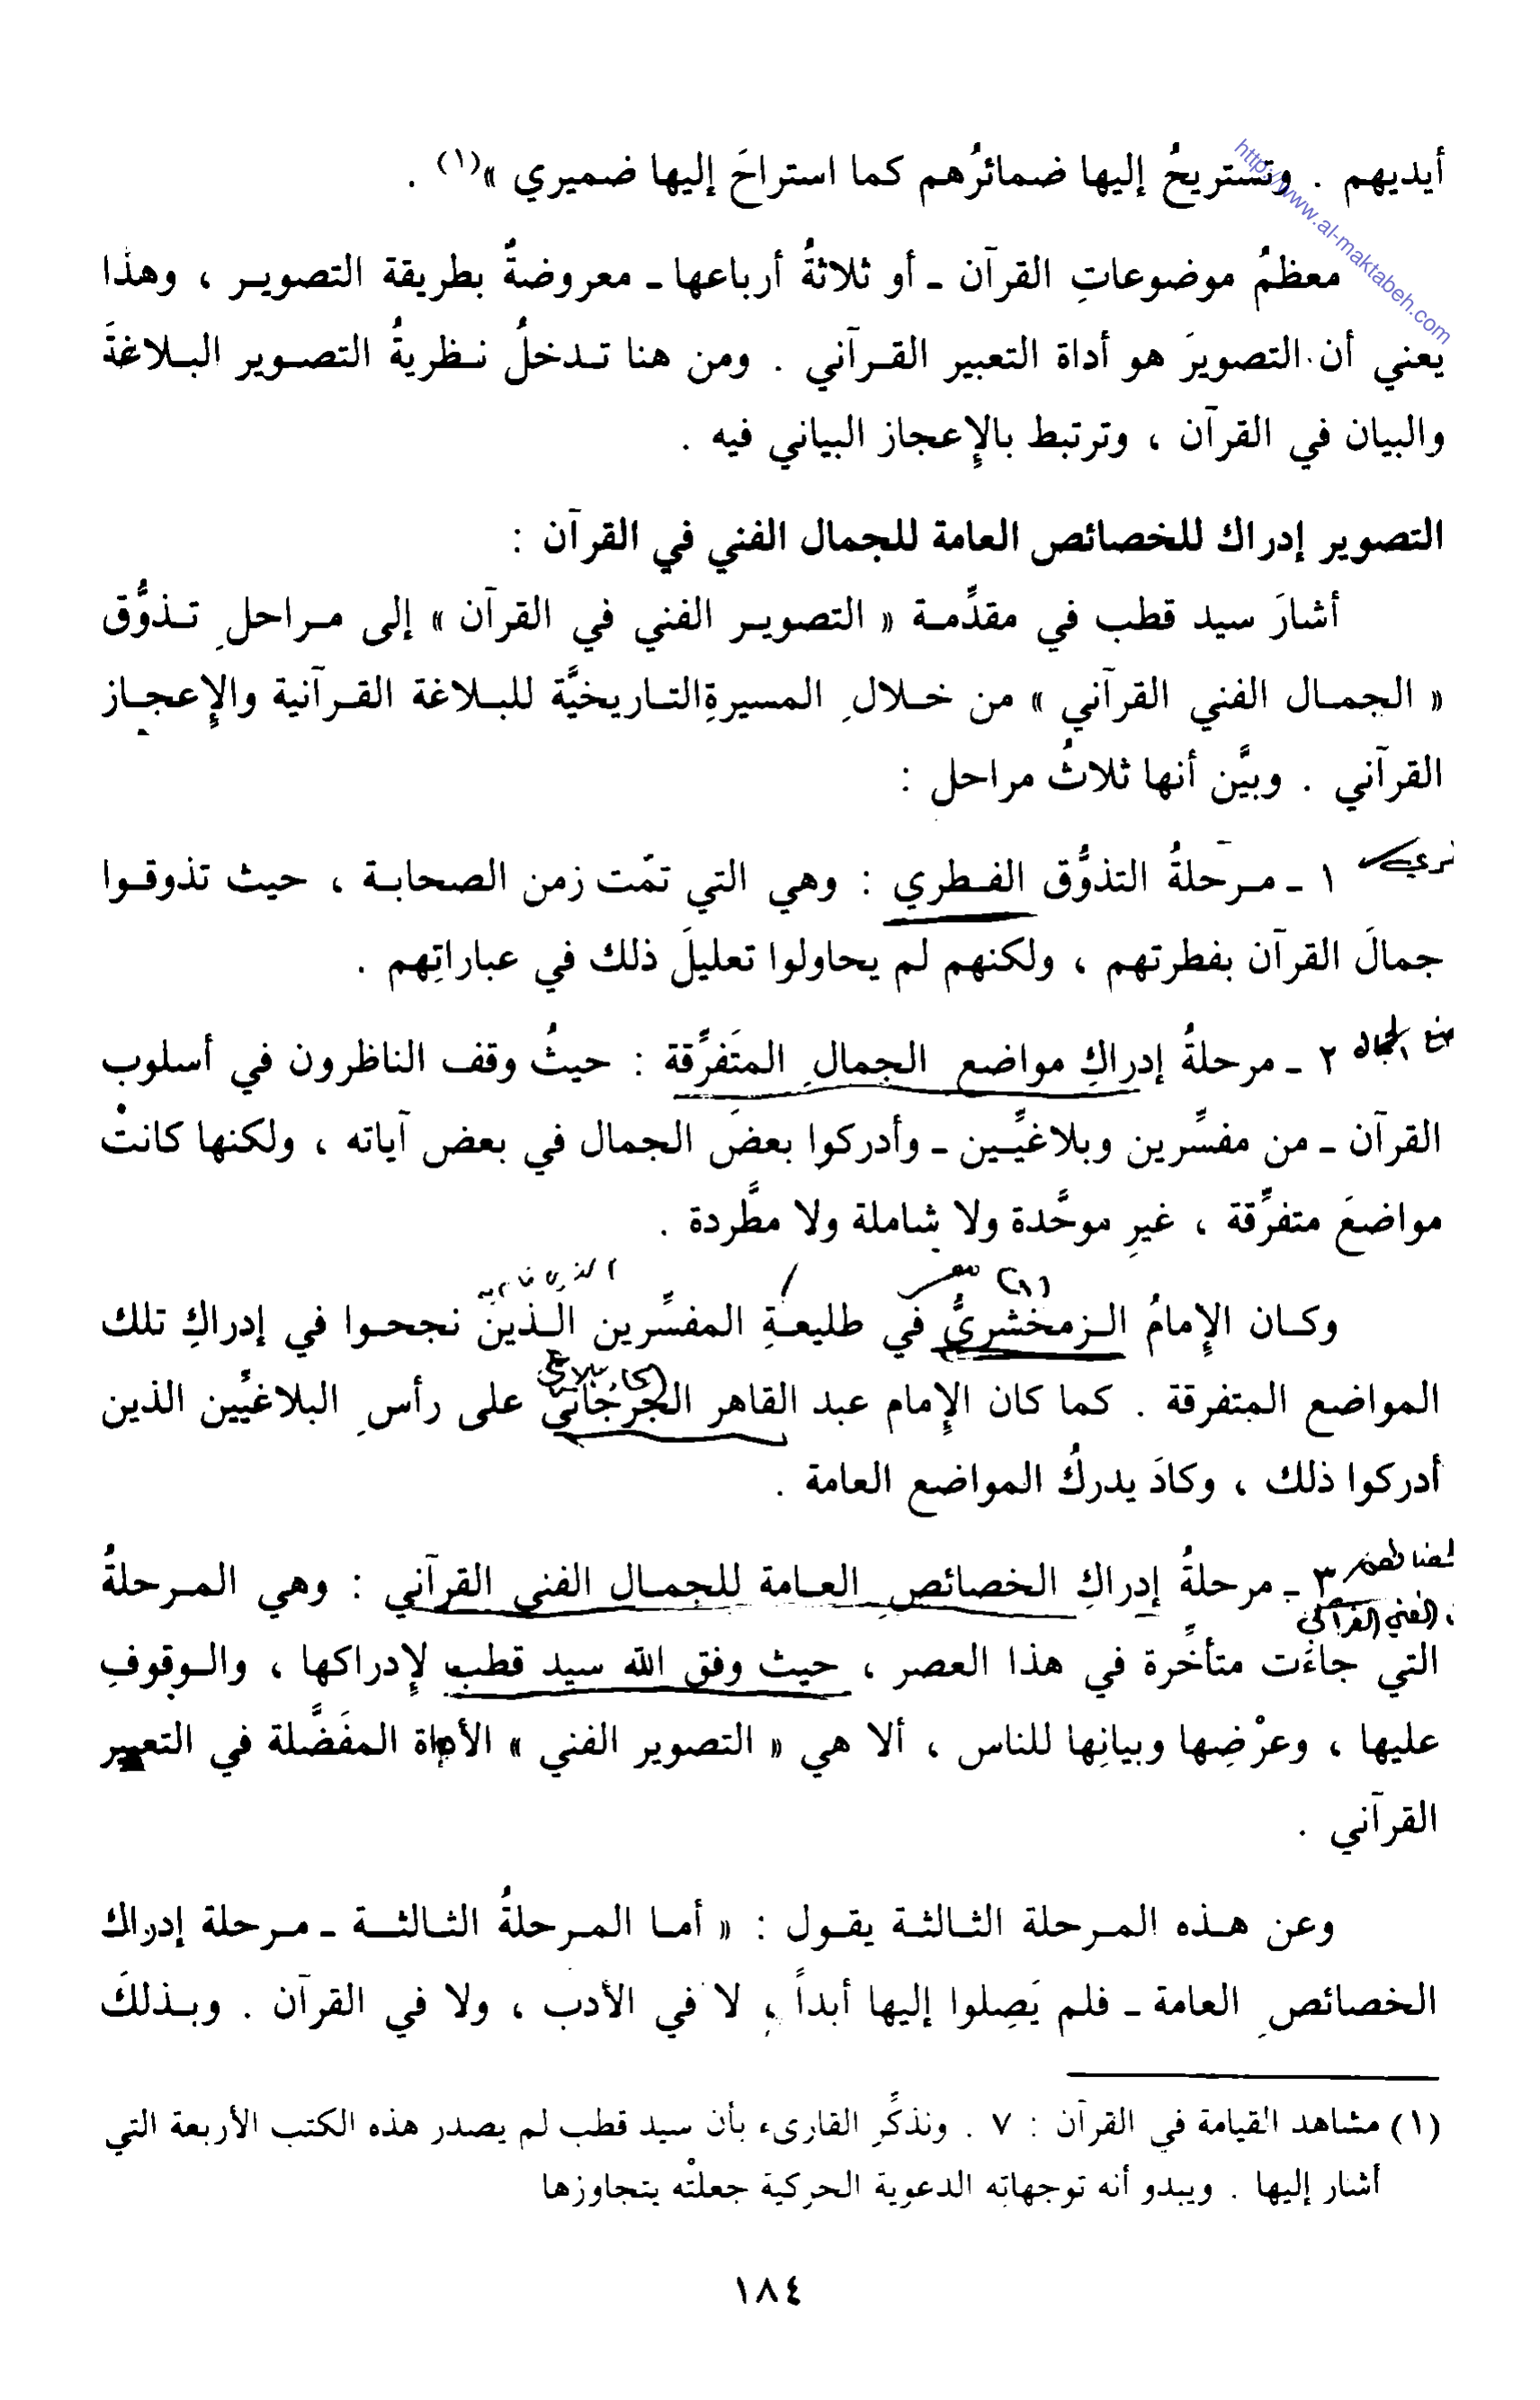 أيديهم . وتستريحُ إليها ضمائرُهم كما استراحَ إليها ضميري »(١) .
http://www.al-maktabeh.com
معظمُ موضوعاتِ القرآن ـ أو ثلاثةُ أرباعها ـ معروضةٌ بطريقة التصويـر ، وهذا
يعني أن التصويرَ هو أداة التعبير القـرآني . ومن هنا تـدخلُ نـظريةُ التصـوير البـلاغةَ
والبيان في القرآن ، وترتبط بالإِعجاز البياني فيه .
التصوير إدراك للخصائص العامة للجمال الفني في القرآن :
أشارَ سيد قطب في مقدِّمـة « التصويـر الفني في القرآن » إلى مـراحلِ تـذوُّق
« الجمـال الفني القرآني » من خـلالِ المسيرةِالتـاريخيَّة للبـلاغة القـرآنية والإِعجـاز
القرآني . وبيَّن أنها ثلاثُ مراحل :
١ ـ مـرحلةُ التذوُّق الفـطري : وهي التي تمّت زمن الصحابـة ، حيث تذوقـوا
جمالَ القرآن بفطرتهم ، ولكنهم لم يحاولوا تعليلَ ذلك في عباراتِهم .
٢ ـ مرحلةُ إدراكِ مواضع الجمالِ المتَفرِّقة : حيثُ وقف الناظرون في أسلوب
القرآن ـ من مفسِّرين وبلاغيِّـين ـ وأدركوا بعضَ الجمال في بعض آياته ، ولكنها كانتْ
مواضعَ متفرِّقة ، غيرِ موحَّدة ولا شاملة ولا مطَّردة .
وكـان الإِمامُ الـزمخشريُّ في طليعـةِ المفسِّرين الَـذينَ نجحـوا في إدراكِ تلك
المواضع المتفرقة . كما كان الإِمام عبد القاهر الجرجاني على رأسِ البلاغيِّين الذين
أدركوا ذلك ، وكادَ يدركُ المواضع العامة .
٣ ـ مرحلةُ إدراكِ الخصائصِ العـامة للجمـال الفني القرآني : وهي المـرحلةُ
الفني القرآني
التي جاءَت متأخِّرة في هذا العصر ، حيث وفق الله سيد قطب لإِدراكها ، والـوقوفِ
عليها ، وعرْضِها وبيانِها للناس ، ألا هي « التصوير الفني » الأداة المفَضَّلة في التعبير
القرآني .
وعن هـذه المـرحلة الثـالثـة يقـول : « أمـا المـرحلةُ الثـالثـــة ـ مـرحلة إدراك
الخصائصِ العامة ـ فلم يَصِلوا إليها أبداً ، لا في الأدب ، ولا في القرآن . وبـذلكَ
(١) مشاهد القيامة في القرآن : ٧ . ونذكِّر القارىء بأن سيد قطب لم يصدر هذه الكتب الأربعة التي
أشار إليها . ويبدو أنه توجهاته الدعوية الحركية جعلتْه يتجاوزها
١٨٤